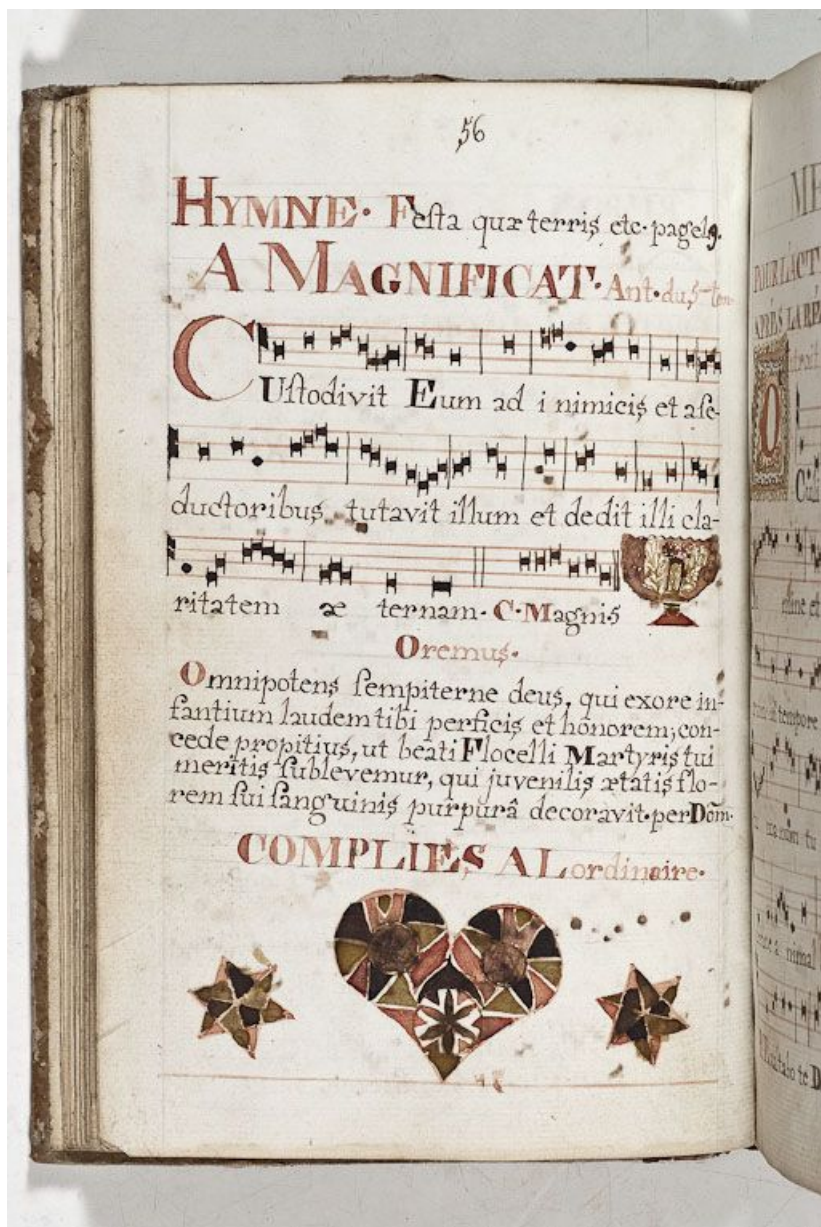 56
HYMNE. Festa quæ terris etc. page
A MAGNIFICAT. Ant. du 5
CUstodivit Eum ad i nimicis et a se-
ductoribus tutavit illum et dedit illi cla-
ritatem æ ternam. C. Magni 5
Oremus.
Omnipotens sempiterne deus, qui ex ore in-
fantium laudem tibi perficis et honorem; con-
cede propitius, ut beati Flocelli Martyris tui
meritis sublevemur, qui juvenilis ætatis flo-
rem sui sanguinis purpurâ decoravit. per Dom.
COMPLIES A L ordinaire.